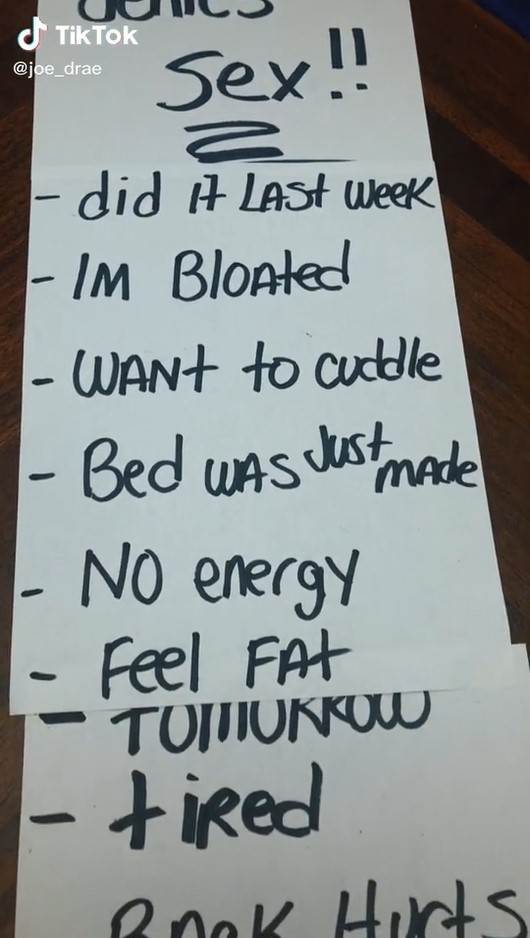 TikTok
@joe_drae
denies
Sex!!
- did it LAST week
- IM BloAted
- WANt to cuddle
- Bed wAs Just mAde
- NO energy
- Feel FAt
- TOMORROW
- tiRed
Back Hurts